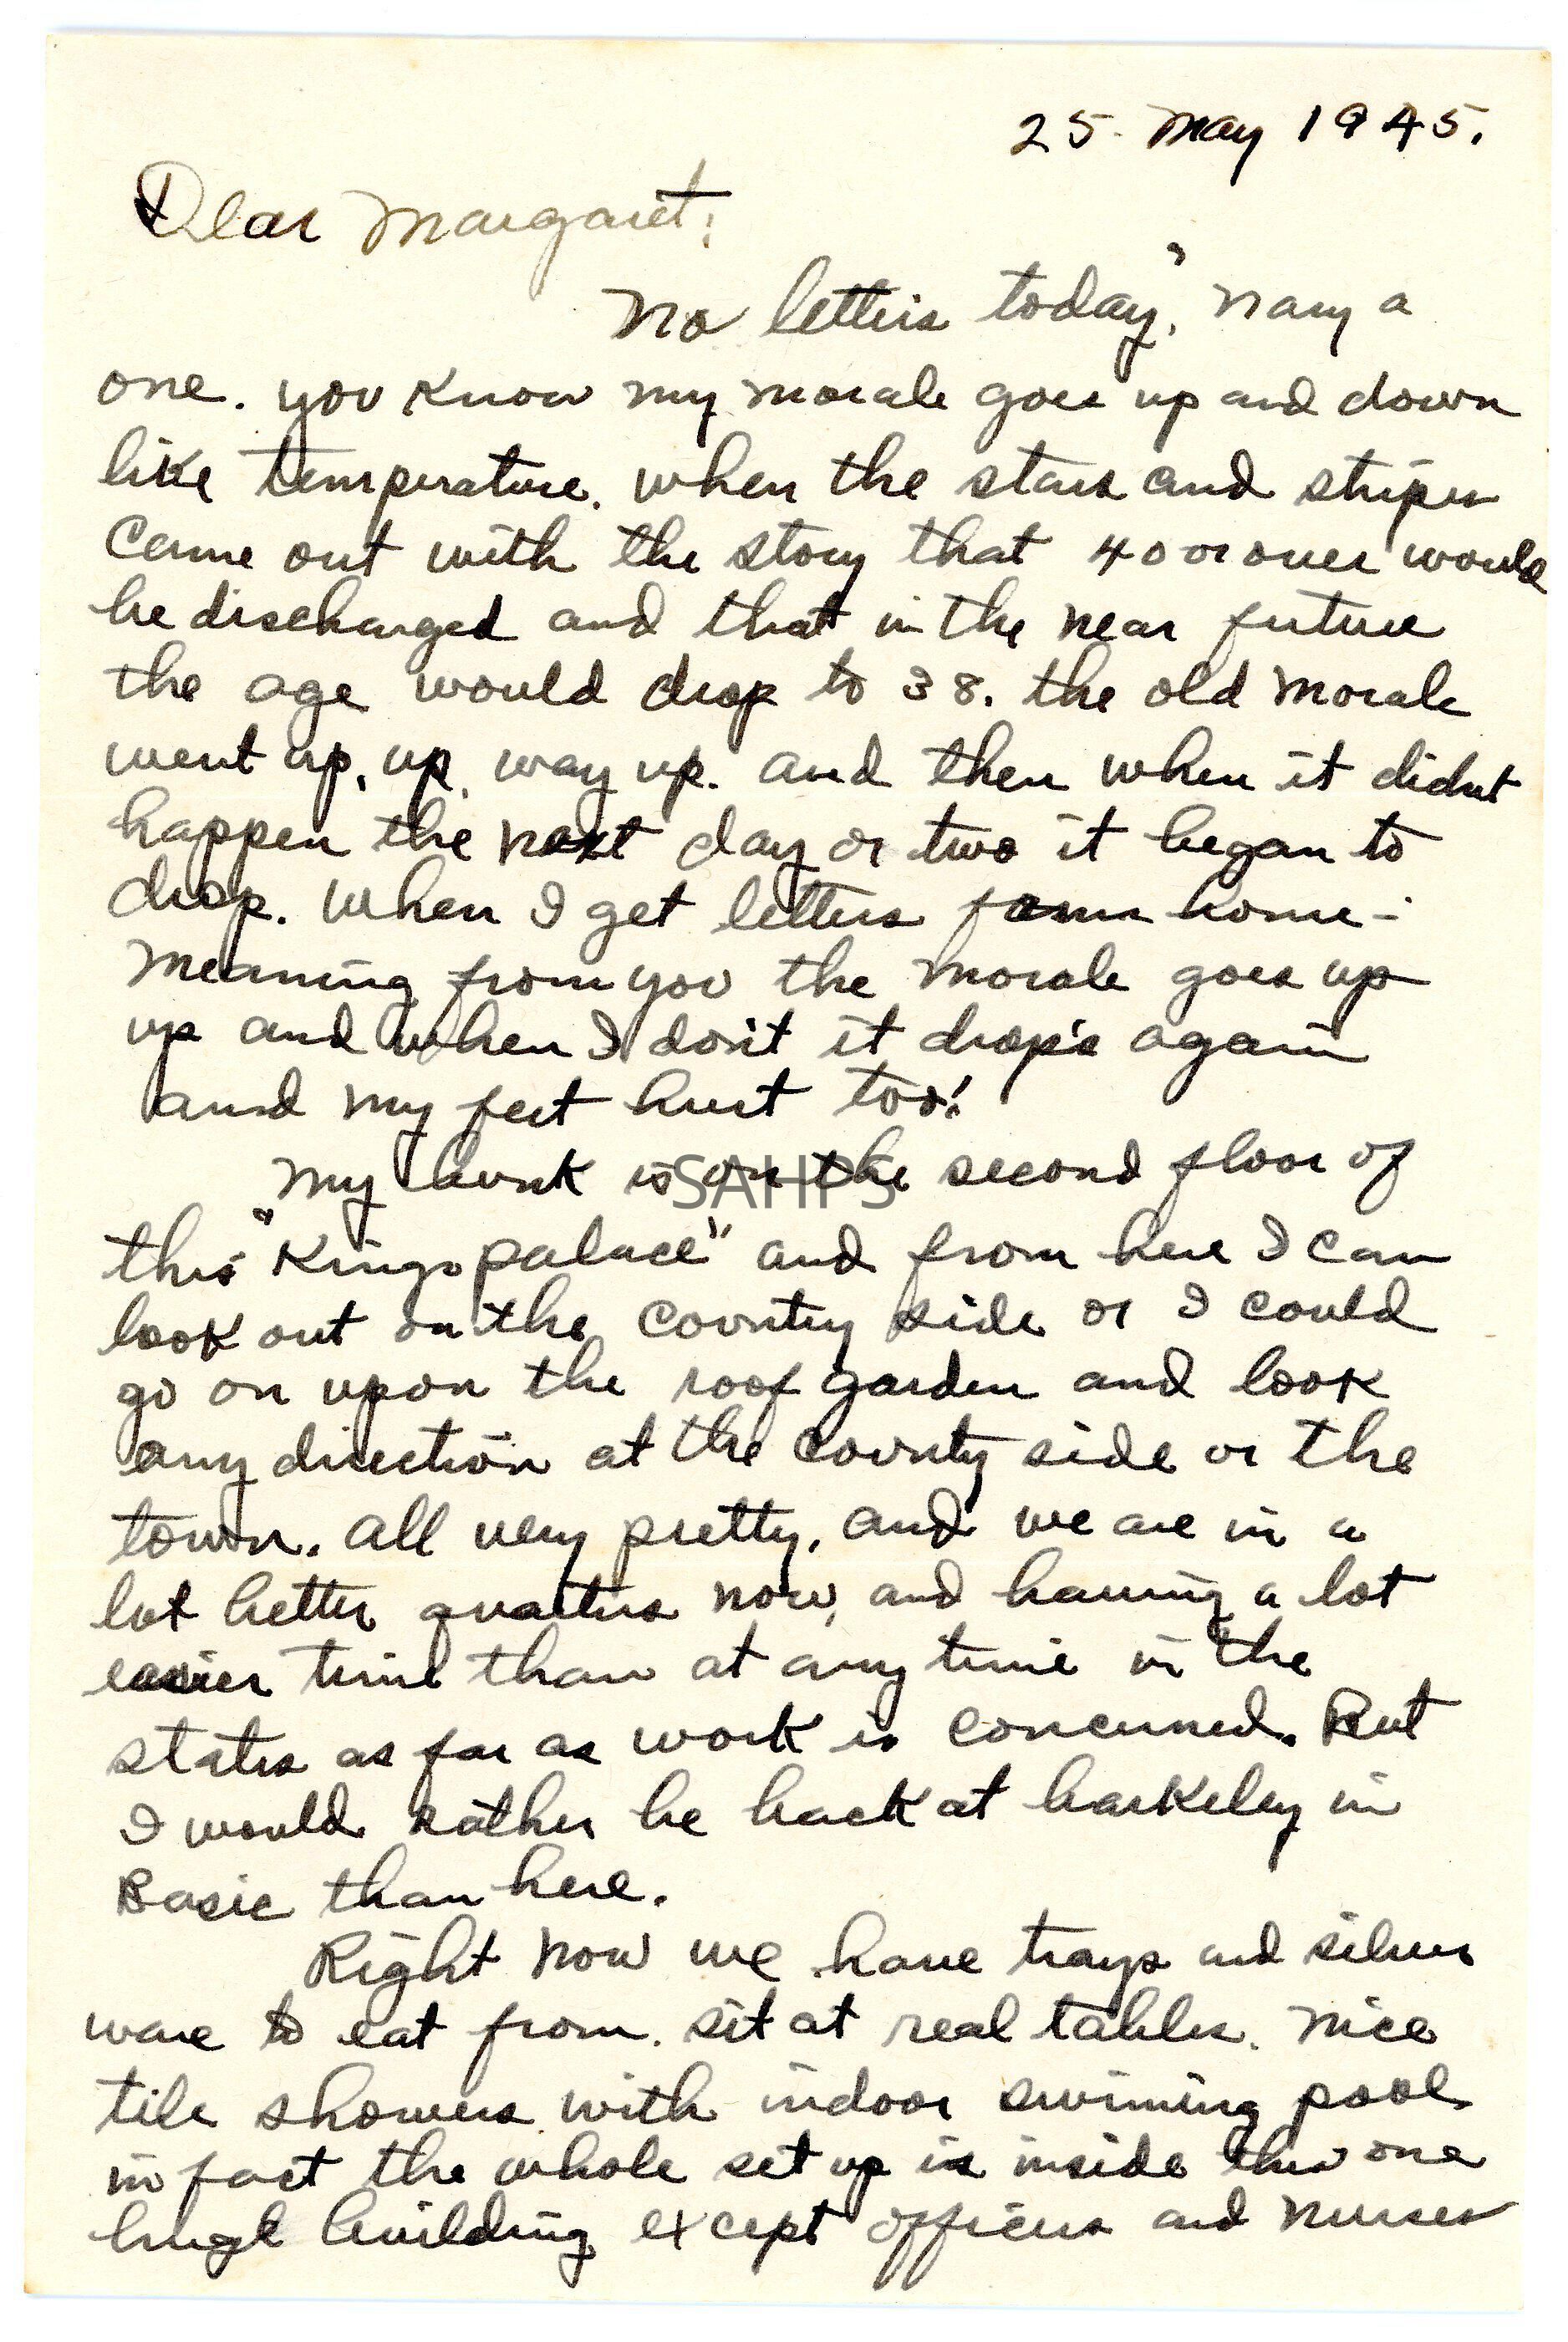 25 May 1945.
Dear Margaret:
No letters today", nary a
one. you know my morale goes up and down
like temperature. when the stars and stripes
came out with the story that 40 or over would
be discharged and that in the near future
the age would drop to 38. the old morale
went up, up, way up. and then when it didnt
happen the next day or two it began to
drop. When I get letters from home -
meaning from you the morale goes up
up and when I don't it drop's again
and my feet hurt too!
My bunk is on the second floor of
SAHPS
this "Kings palace" and from here I can
look out on the country side or I could
go on upon the roof garden and look
any direction at the county side or the
town. all very pretty. and we are in a
lot better quarters now, and having a lot
easier time than at any time in the
states as far as work is concerned. But
I would rather be back at barkeley in
Basic than here.
Right now we have trays and silver
ware to eat from. sit at real tables. nice
tile showers with indoor swiming pool
in fact the whole set up is inside this one
huge building except officers and nurses